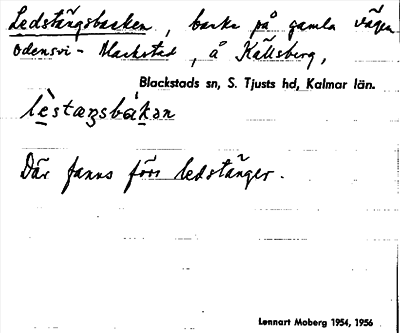 Ledstångsbacken, backe på gamla vägen
Odensvi - Blackstad, å Källsberg,
Blackstads sn, S. Tjusts hd, Kalmar län.
lèstaŋsbákən
Där fanns förr ledstänger.
Lennart Moberg 1954, 1956